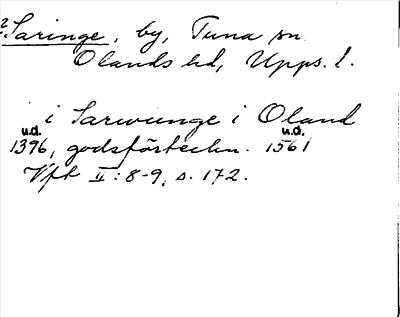 ?Saringe, by, Tuna sn
Olands hd, Upps. l.
i Sarwunge i Oland
u.d. u.d.
1396, godsförteckn. 1561
Vft II: 8-9, s. 172.